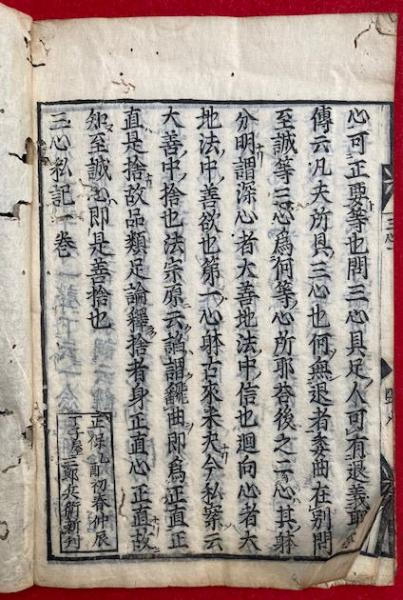 心可正要等也問三心具足人可有退義耶
傳云凡夫所具三心也何無退者委曲在別問
至誠等三心爲何等心所耶荅後之二心其躰
分明謂深心者大善地法中信也迴向心者大
地法中善欲也第一心躰古來未决今私案云
大善中捨也法宗原云諂謂曲即爲正直正
直是捨故品類足論釋捨者身正直心正直故
知至誠心即是善捨也
三心私記一巻
正保乙酉初春仲辰
三郎兵衛新刊
三心